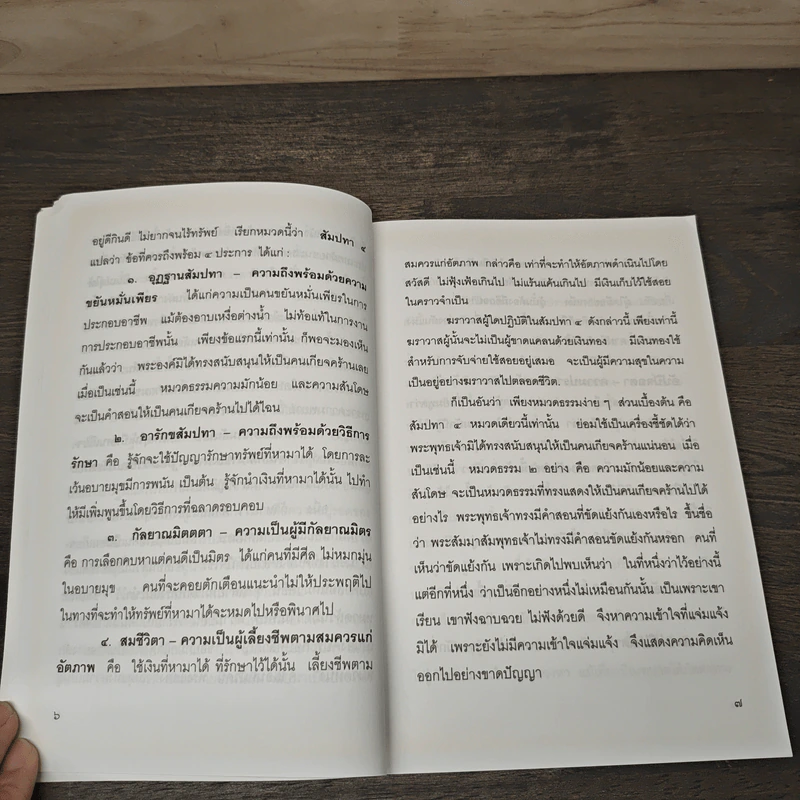 อยู่ดีกินดี ไม่ยากจนไร้ทรัพย์ เรียกหมวดนี้ว่า สัมปทา ๔
แปลว่า ข้อที่ควรถึงพร้อม ๔ ประการ ได้แก่ :
๑. อุฏฐานสัมปทา – ความถึงพร้อมด้วยความ
ขยันหมั่นเพียร ได้แก่ความเป็นคนขยันหมั่นเพียรในการ
ประกอบอาชีพ แม้ต้องอาบเหงื่อต่างน้ำ ไม่ท้อแท้ในการงาน
การประกอบอาชีพนั้น เพียงข้อแรกนี้เท่านั้น ก็พอจะมองเห็น
กันแล้วว่า พระองค์มิได้ทรงสนับสนุนให้เป็นคนเกียจคร้านเลย
เมื่อเป็นเช่นนี้ หมวดธรรมความมักน้อย และความสันโดษ
จะเป็นคำสอนให้เป็นคนเกียจคร้านไปได้ไฉน
๒. อารักขสัมปทา – ความถึงพร้อมด้วยวิธีการ
รักษา คือ รู้จักจะใช้ปัญญารักษาทรัพย์ที่หามาได้ โดยการละ
เว้นอบายมุขมีการพนัน เป็นต้น รู้จักนำเงินที่หามาได้นั้น ไปทำ
ให้มีเพิ่มพูนขึ้นโดยวิธีการที่ฉลาดรอบคอบ
๓. กัลยาณมิตตตา – ความเป็นผู้มีกัลยาณมิตร
คือ การเลือกคบหาแต่คนดีเป็นมิตร ได้แก่คนที่มีศีล ไม่หมกมุ่น
ในอบายมุข คนที่จะคอยตักเตือนแนะนำไม่ให้ประพฤติไป
ในทางที่จะทำให้ทรัพย์ที่หามาได้จะหมดไปหรือพินาศไป
๔. สมชีวิตา – ความเป็นผู้เลี้ยงชีพตามสมควรแก่
อัตภาพ คือ ใช้เงินที่หามาได้ ที่รักษาไว้ได้นั้น เลี้ยงชีพตาม
๖
สมควรแก่อัตภาพ กล่าวคือ เท่าที่จะทำให้อัตภาพดำเนินไปโดย
สวัสดี ไม่ฟุ้งเฟ้อเกินไป ไม่แร้นแค้นเกินไป มีเงินเก็บไว้ใช้สอย
ในคราวจำเป็น
ฆราวาสผู้ใดปฏิบัติในสัมปทา ๔ ดังกล่าวนี้ เพียงเท่านี้
ฆราวาสผู้นั้นจะไม่เป็นผู้ขาดแคลนด้วยเงินทอง มีเงินทองใช้
สำหรับการจับจ่ายใช้สอยอยู่เสมอ จะเป็นผู้มีความสุขในความ
เป็นอยู่อย่างฆราวาสไปตลอดชีวิต.
ก็เป็นอันว่า เพียงหมวดธรรมง่าย ๆ ส่วนเบื้องต้น คือ
สัมปทา ๔ หมวดเดียวนี้เท่านั้น ย่อมใช้เป็นเครื่องชี้ชัดได้ว่า
พระพุทธเจ้ามิได้ทรงสนับสนุนให้เป็นคนเกียจคร้านแน่นอน เมื่อ
เป็นเช่นนี้ หมวดธรรม ๒ อย่าง คือ ความมักน้อยและความ
สันโดษ จะเป็นหมวดธรรมที่ทรงแสดงให้เป็นคนเกียจคร้านไปได้
อย่างไร พระพุทธเจ้าทรงมีคำสอนที่ขัดแย้งกันเองหรือไร ขึ้นชื่อ
ว่า พระสัมมาสัมพุทธเจ้าไม่ทรงมีคำสอนขัดแย้งกันหรอก คนที่
เห็นว่าขัดแย้งกัน เพราะเกิดไปพบเห็นว่า ในที่หนึ่งว่าไว้อย่างนี้
แต่อีกที่หนึ่ง ว่าเป็นอีกอย่างหนึ่งไม่เหมือนกันนั้น เป็นเพราะเขา
เรียน เขาฟังฉาบฉวย ไม่ฟังด้วยดี จึงหาความเข้าใจที่แจ่มแจ้ง
มิได้ เพราะยังไม่มีความเข้าใจแจ่มแจ้ง จึงแสดงความคิดเห็น
ออกไปอย่างขาดปัญญา
๗